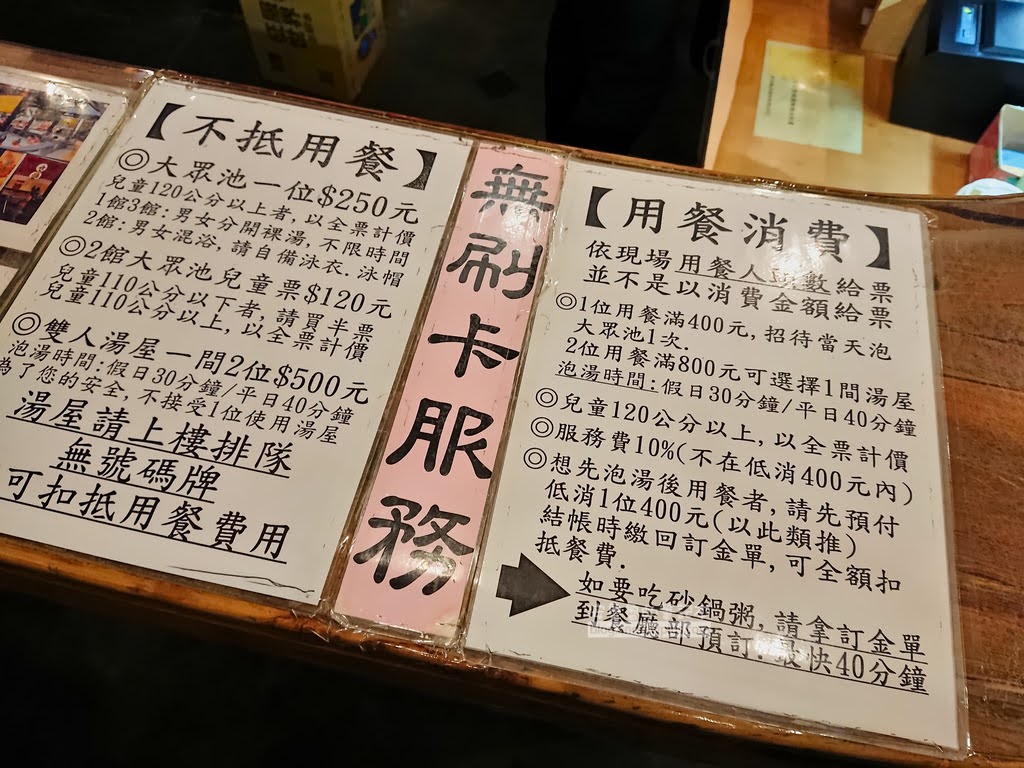 【不抵用餐】
◎大眾池一位$250元
兒童120公分以上者,以全票計價
1館3館:男女分開裸湯,不限時間
2館:男女混浴,請自備泳衣.泳帽
◎2館大眾池兒童票$120元
兒童110公分以下者,請買半票
兒童110公分以上,以全票計價
◎雙人湯屋一間2位$500元
泡湯時間:假日30分鐘/平日40分鐘
為了您的安全,不接受1位使用湯屋
湯屋請上樓排隊
無號碼牌
可扣抵用餐費用
無刷卡服務
【用餐消費】
依現場用餐人頭數給票
並不是以消費金額給票
◎1位用餐滿400元,招待當天泡
大眾池1次.
2位用餐滿800元可選擇1間湯屋
泡湯時間:假日30分鐘/平日40分鐘
◎兒童120公分以上,以全票計價
◎服務費10%(不在低消400元內)
◎想先泡湯後用餐者,請先預付
低消1位400元(以此類推)
結帳時繳回訂金單,可全額扣
抵餐費.
如要吃砂鍋粥,請拿訂金單
到餐廳部預訂.最快40分鐘